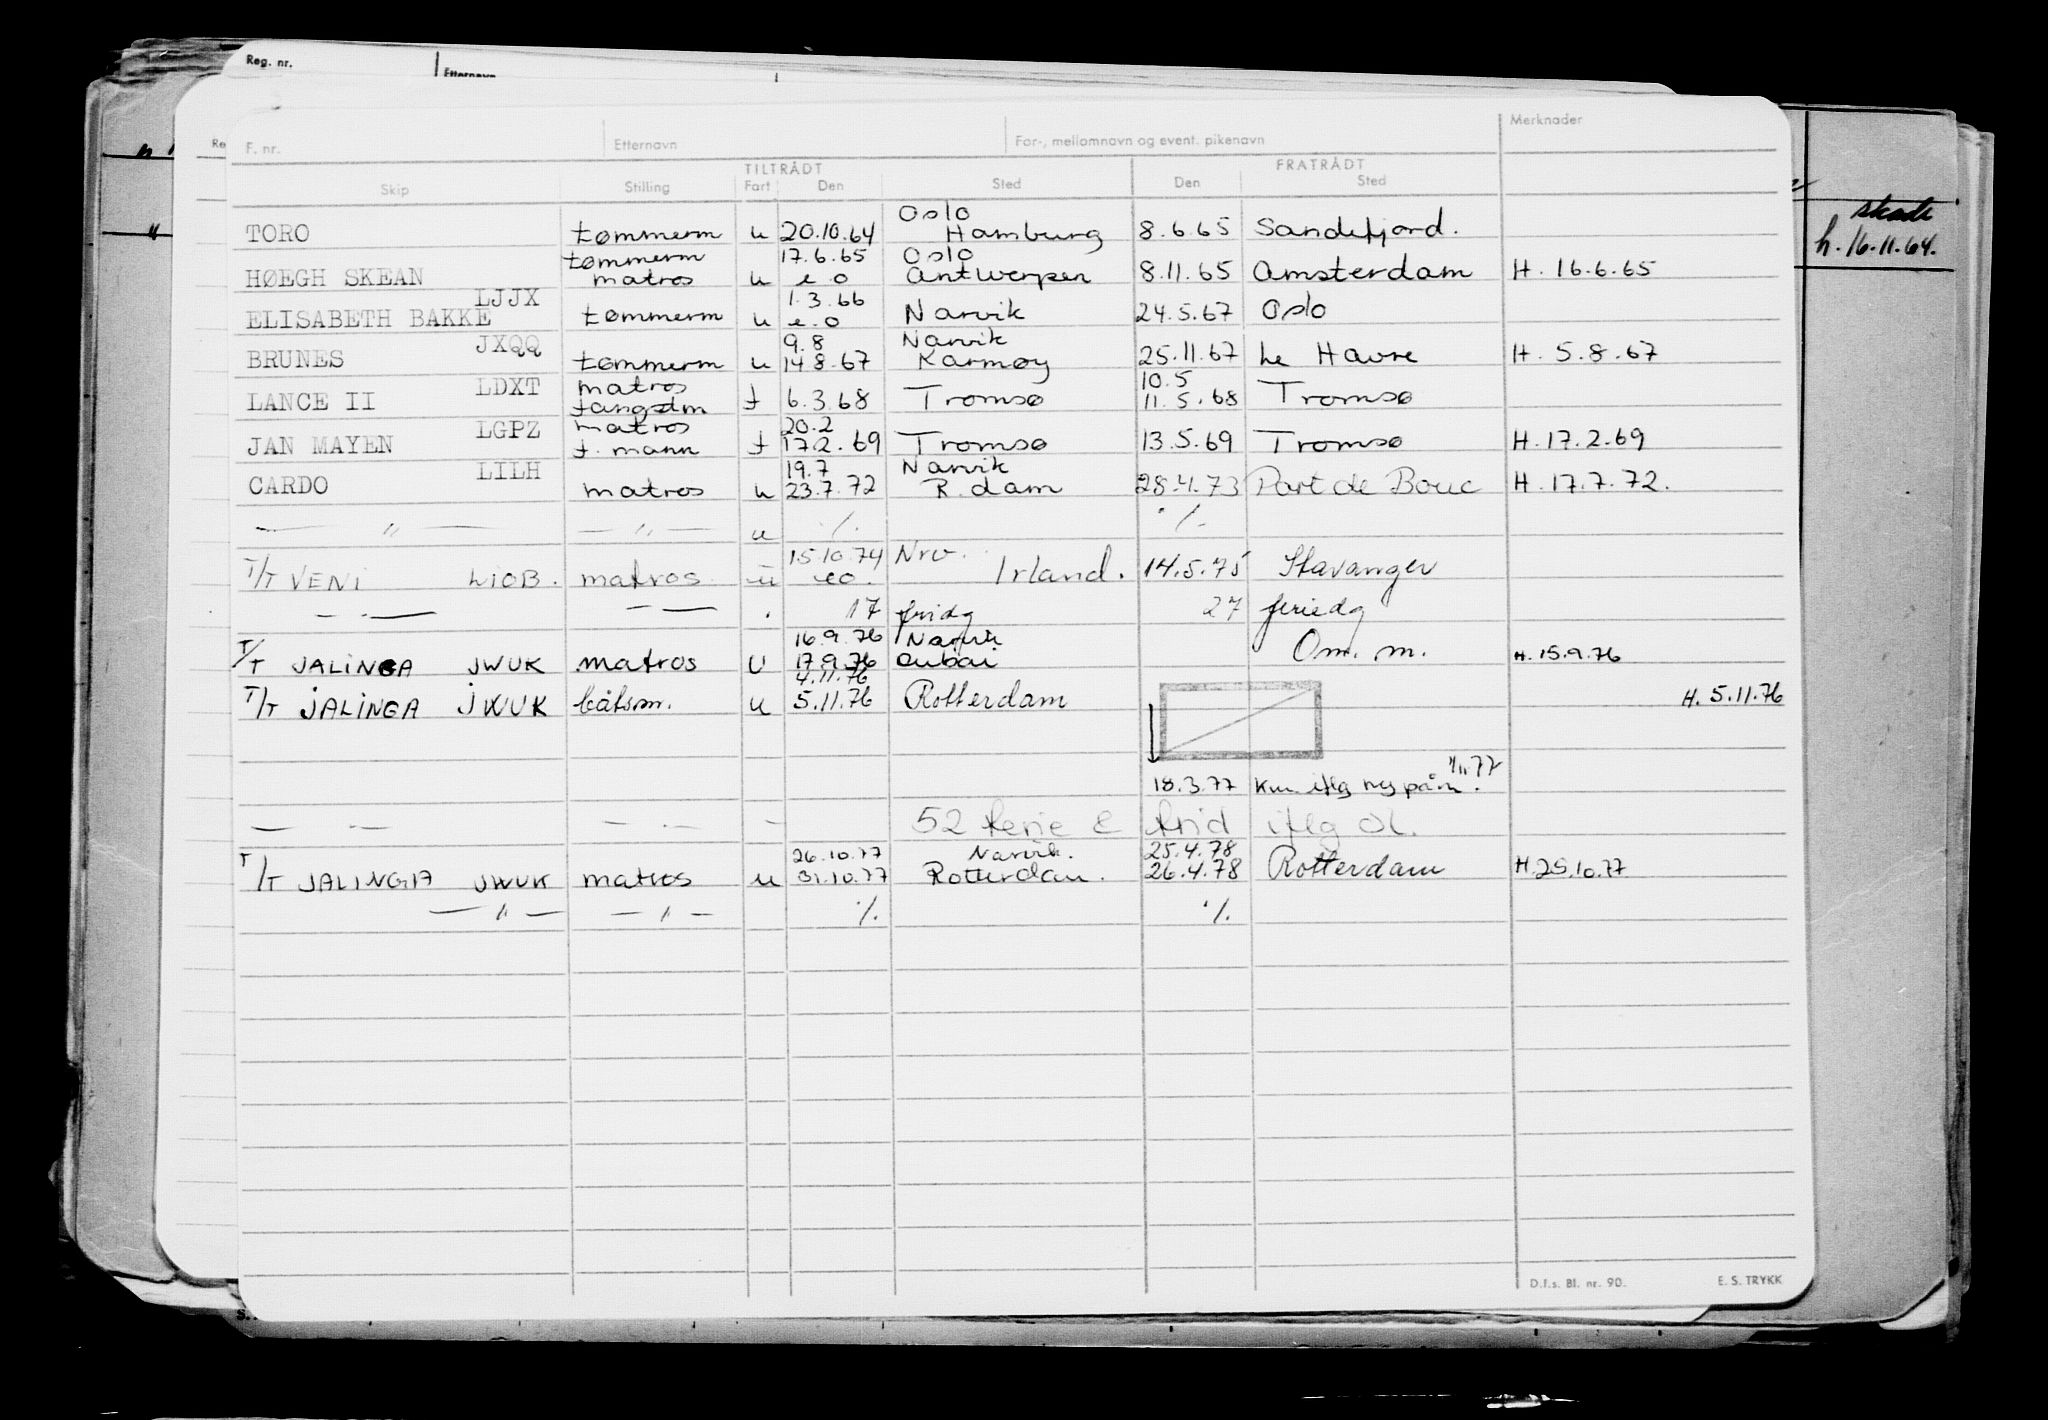 Reg. nr. Etternavn
F. nr. Etternavn For-, mellomnavn og event. pikenavn Merknader
TILTRÅDT FRATRÅDT
Skip Stilling Fart Den Sted Den Sted
skade
h. 16.11.64.
Oslo
TORO tømmerm u 20.10.64 Hamburg 8.6.65 Sandefjord.
tømmerm 17.6.65 Oslo
HØEGH SKEAN matros u e.o Antwerpen 8.11.65 Amsterdam H. 16.6.65
LJJX 1.3.66
ELISABETH BAKKE tømmerm u e.o Narvik 24.5.67 Oslo
JXQQ 9.8 Narvik
BRUNES tømmerm u 14.8.67 Karmøy 25.11.67 Le Havre H. 5.8.67
LDXT matros 10.5
LANCE II fangstm f 6.3.68 Tromsø 11.5.68 Tromsø
LGPZ matros 20.2
JAN MAYEN f. mann f 17.2.69 Tromsø 13.5.69 Tromsø H. 17.2.69
LILH 19.7 Narvik
CARDO matros u 23.7.72 R.dam 28.4.73 Port de Bouc H. 17.7.72.
— " — — " — u ·/. ·/.
15.10.74 Nrv.
T/T VENI LIOB. matros u eo. Irland. 14.5.75 Stavanger
— · — — — · 17 fridg 27 feriedg
16.9.76 Narvik
T/T JALINGA JWUK matros U 17.9.76 Dubai Om. m. H. 15.9.76
4.11.76
T/T JALINGA JWUK båtsm. u 5.11.76 Rotterdam H. 5.11.76
1/11 77
18.3.77 Kun iflg ny påm.
— · — — · — — 52 ferie & frid iflg OL.
26.10.77 Narvik. 25.4.78
T/T JALINGA JWUK matros u 31.10.77 Rotterdam. 26.4.78 Rotterdam H. 25.10.77
— " — — " — ·/. ·/.
D.f.s. Bl. nr. 90. E. S. TRYKK